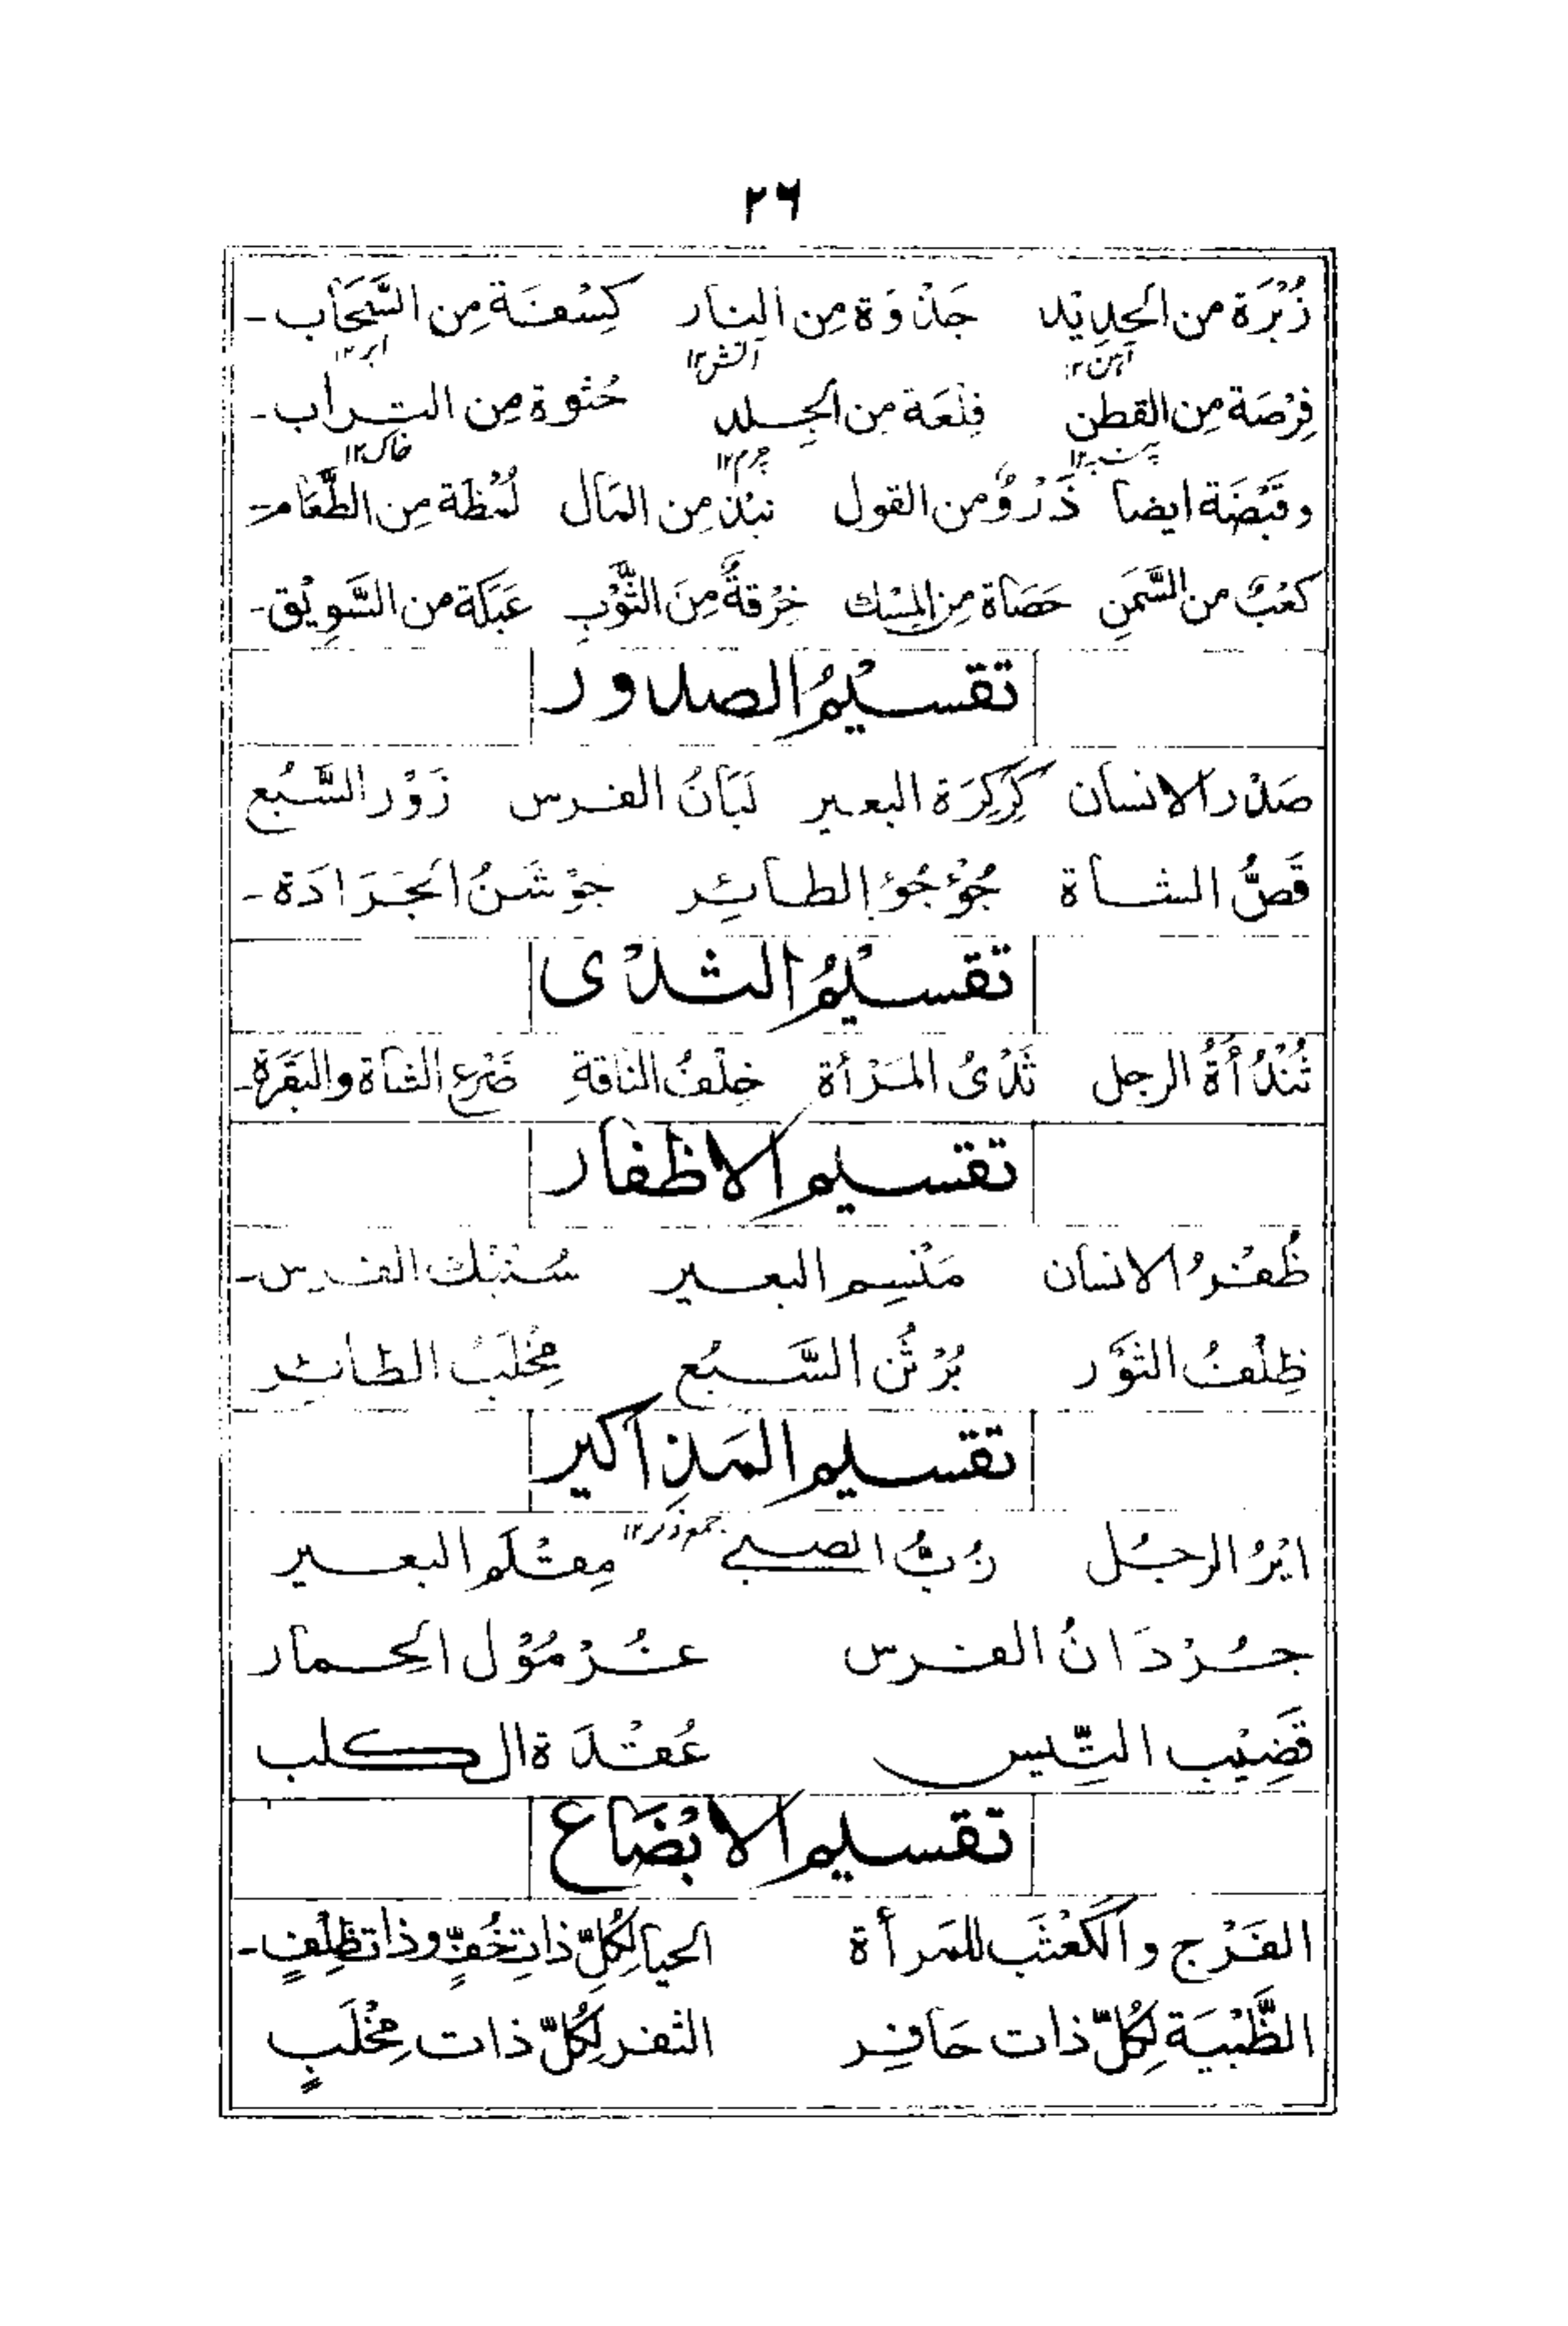 ٢٦
زُبْرَة من الحدِيْد جَذْوَة مِن النار كِسْفَة مِن السَّحَاب ـ
آہن ١٢ آتش ١٢ ابر ١٢
فِرْصَة مِن القطن فِلْعَة مِن الجِلد حُثْوة مِن التراب ـ
پنبہ ١٢ چرم ١٢ خاک ١٢
وقَبْضَة ايضا ذَرْوٌ من القول نَبْذ مِن المَال لُمْظَة مِن الطَّعَام ـ
كَعْبٌ من السَّمَنِ حَصَاة مِن المِسْك خِرْقةٌ مِنَ الثَّوْبِ عَبَكَة من السَّوِيْق ـ
تقسيْمُ الصدور
صَدْر الانسان كِرْكِرَة البعير لَبَانُ الفرس زَوْر السَّبُع
قَصُّ الشاة جُؤْجُؤ الطائِر جَوْشَنُ الجَرَادَة ـ
تقسيْمُ الثدْى
ثُنْدُأَةُ الرجل ثَدْىُ المَرْأة خِلْفُ الناقةِ ضَرْع الشاة والبَقَرَةِ ـ
تقسيم الاظفار
ظُفْرُ الانسان مَنْسِم البعير سُنْبُك الفرس ـ
ظِلْفُ الثوَر بُرْثُن السَّبُع مِخْلَبُ الطائِر
تقسيم المَذاكير
جمع ذکر ١٢
ايْرُ الرجُل زُبُّ الصبي مِقْلَم البعير
جُرْدَانُ الفرس غُرْمُوْل الحِمار
قَضِيْب التَّيس عُقْدَة الكلب
تقسيم الابْضَاع
الفَرْج والكَعْثَب للمَرأة الحيا لِكُلِّ ذاتِ خُفٍّ وذات ظِلْفٍ ـ
الظَّبْيَة لِكُلِّ ذات حَافِر الثفر لِكُلِّ ذات مِخْلَبٍ